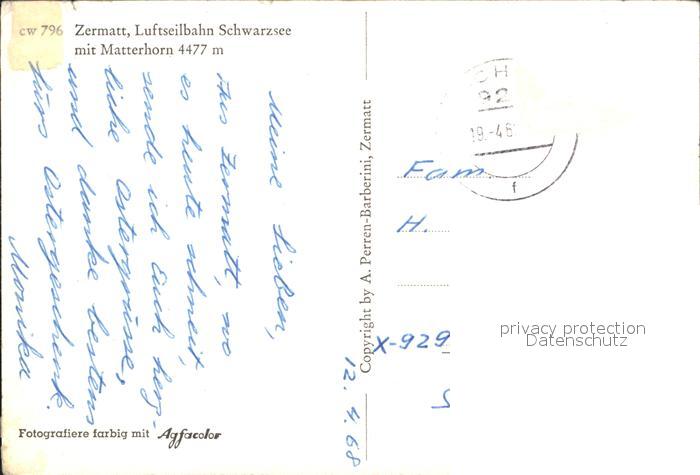 cw 796 Zermatt, Luftseilbahn Schwarzsee
mit Matterhorn 4477 m
Meine Lieben,
Aus Zermatt, wo
es heute schneit,
sende ich Euch herz-
liche Ostergrüsse,
und danke bestens
fürs Ostergeschenk.
Monika
12.4.68
Fotografiere farbig mit Agfacolor
Copyright by A. Perren-Barberini, Zermatt
CH
92
19.-4.6
f
Fam
H.
X-929
privacy protection
Datenschutz